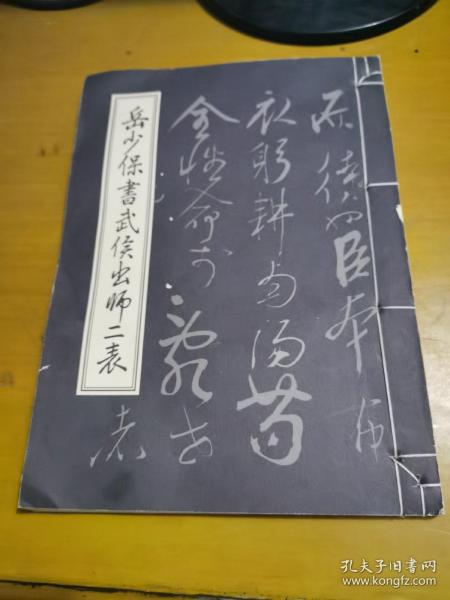 岳少保書武侯出師二表
臣本布
衣躬耕南陽苟
全性命於亂世
孔夫子旧书网
www.kongfz.com